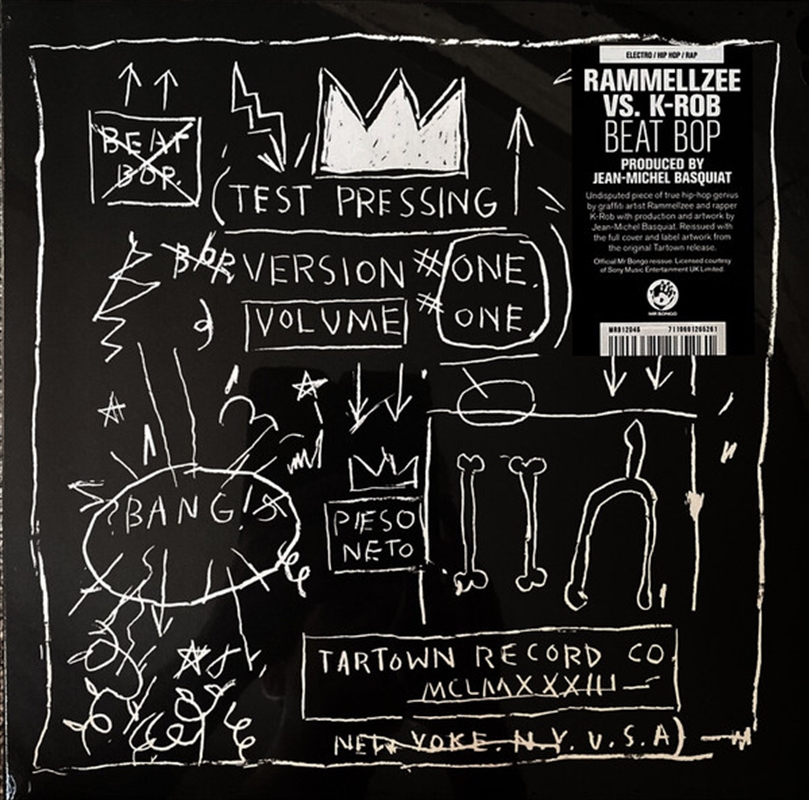 BEAT
BOP.
(TEST PRESSING
BOP VERSION #ONE.
VOLUME #ONE)
BANG!
PIESO
NETO
TARTOWN RECORD CO
MCLMXXXIII
NEW YOKE. N.Y. U.S.A)
ELECTRO / HIP HOP / RAP
RAMMELLZEE
VS. K-ROB
BEAT BOP
PRODUCED BY
JEAN-MICHEL BASQUIAT
Undisputed piece of true hip-hop genius
by graffiti artist Rammellzee and rapper
K-Rob with production and artwork by
Jean-Michel Basquiat. Reissued with
the full cover and label artwork from
the original Tartown release.
Official Mr Bongo reissue. Licensed courtesy
of Sony Music Entertainment UK Limited.
MR BONGO
MRB12046 7119691265261